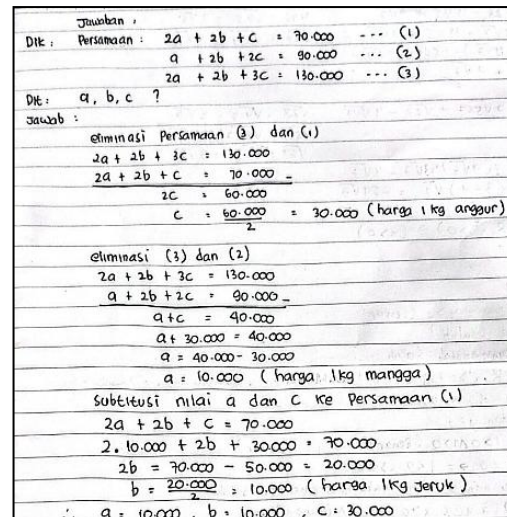 Jawaban :
Dik : Persamaan : 2a + 2b + c = 70.000 --- (1)
a + 2b + 2c = 90.000 --- (2)
2a + 2b + 3c = 130.000 --- (3)
Dit : a, b, c ?
Jawab :
eliminasi Persamaan (3) dan (1)
2a + 2b + 3c = 130.000
2a + 2b + c = 70.000 -
2c = 60.000
c = 60.000/2 = 30.000 (harga 1 kg anggur)
eliminasi (3) dan (2)
2a + 2b + 3c = 130.000
a + 2b + 2c = 90.000 -
a + c = 40.000
a + 30.000 = 40.000
a = 40.000 - 30.000
a = 10.000 (harga 1kg mangga)
Subtitusi nilai a dan c ke Persamaan (1)
2a + 2b + c = 70.000
2. 10.000 + 2b + 30.000 = 70.000
2b = 70.000 - 50.000 = 20.000
b = 20.000/2 = 10.000 (harga 1kg Jeruk)
∴ a = 10.000, b = 10.000, c = 30.000